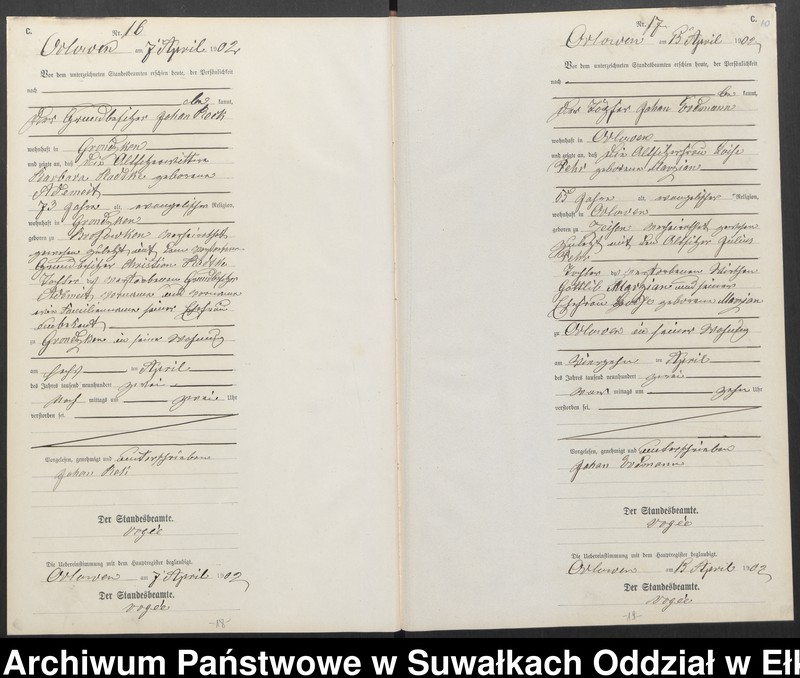 C.
Nr. 16
Orlowen am 7 April 1902
Vor dem unterzeichneten Standesbeamten erschien heute, der Persönlichkeit
nach
kannt,
der Grundbesitzer Johan
wohnhaft in
und zeigte an, daß die Altsitzerwittwe
Barbara Radtke geborene
Ademeit
73 Jahre a evangelischer Religion,
wohnhaft in
geboren zu verheirathet
gewesen zuletzt mit dem verstorbenen
Grundbesitzer Christian Radtke
Tochter verstorbenen Grundbesitzer
Ademeit Vorname und Vorname
Familienname seiner Ehefrau
unbekant
zu in seiner Wohnung
am sechs ten April
des Jahres tausend neunhundert zwei
Nach mittags um zwei Uhr
verstorben sei.
Vorgelesen, genehmigt und unterschrieben
Johan
Der Standesbeamte.
Vogée
Die Uebereinstimmung mit dem Hauptregister beglaubigt.
Orlowen am 7 April 1902
Der Standesbeamte.
Vogée
-18-
C.
Nr. 17
Orlowen am 15 April 1902
Vor dem unterzeichneten Standesbeamten erschien heute, der Persönlichkeit
nach
be kannt,
der Töpfer Johan Erdmann
wohnhaft in Orlowen
und zeigte an, daß die Altsitzerfrau
Fehr geborene Marzian
65 Jahre a evangelischer Religion,
wohnhaft in Orlowen
geboren zu verheirathet gewesen
zuletzt mit dem Altsitzer Julius
Fehr
Tochter verstorbenen Wirthen
Gottlieb Marzian und seiner
Ehefrau geborene Marzian
zu Orlowen in seiner Wohnung
am vierzehn ten April
des Jahres tausend neunhundert zwei
Vor mittags um zehn Uhr
verstorben sei.
Vorgelesen, genehmigt und unterschrieben
Johan Erdmann
Der Standesbeamte.
Vogée
Die Uebereinstimmung mit dem Hauptregister beglaubigt.
Orlowen am 15 April 1902
Der Standesbeamte.
Vogée
-19-
Archiwum Państwowe w Suwałkach Oddział w Ełk